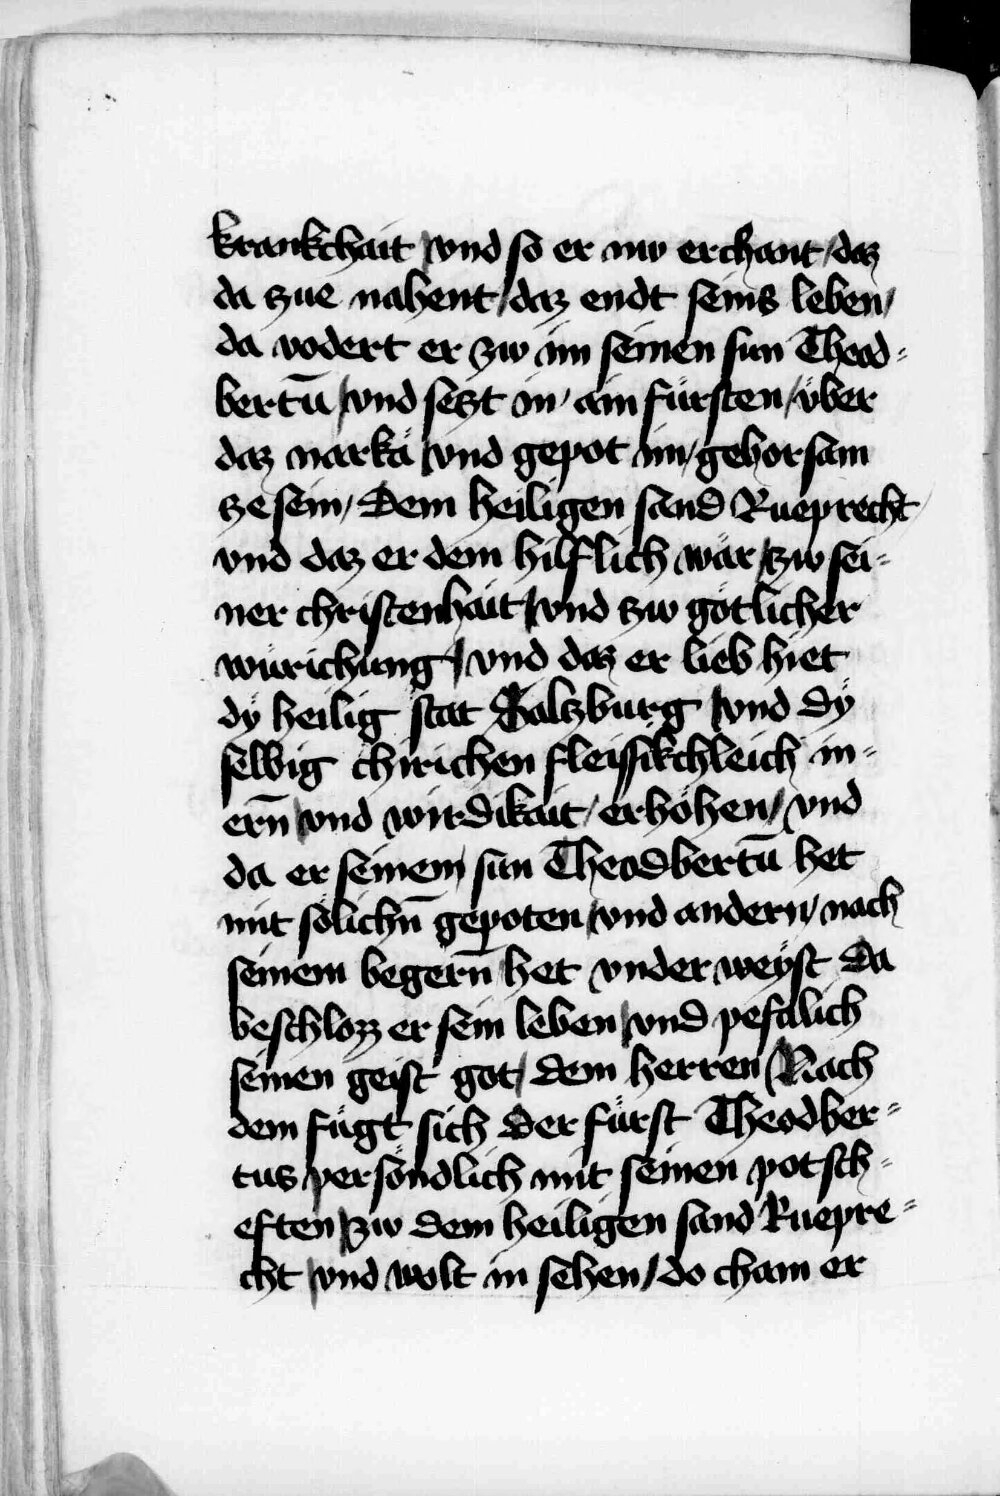 krankchait / vnd so er nw erchant / daz
da zue nahent / daz endt seins leben /
da vodert er zw im seinen sun Theod=
bertū / vnd setzt in / ain fürsten / über
daz narkä / vnd gepot im / gehorsam
ze sein / Dem heiligen sand Rueprecht /
vnd daz er dem hilflich wär / zw sei=
ner christenhait / vnd zw götlicher
würichung / vnd daz er lieb hiet
dÿ heilig stat Salzburg / vnd dÿ
selbig chirichen fleissikchleich in=
ern̄ / vnd wirdikait / erhöhen / vnd
da er seinem sun Theodbertū het
mit sölichn̄ gepoten / vnd andern / nach
seinem begern̄ het vnder weÿst Da
beschlozz er sein leben / vnd pefalich
seinen geist got / dem herren / Nach
dem fügt sich Der fürst Theodber=
tus persöndlich mit seinen potsch=
eften / zw dem heiligen sand Ruepre=
cht / vnd wolt in sehen / do cham er